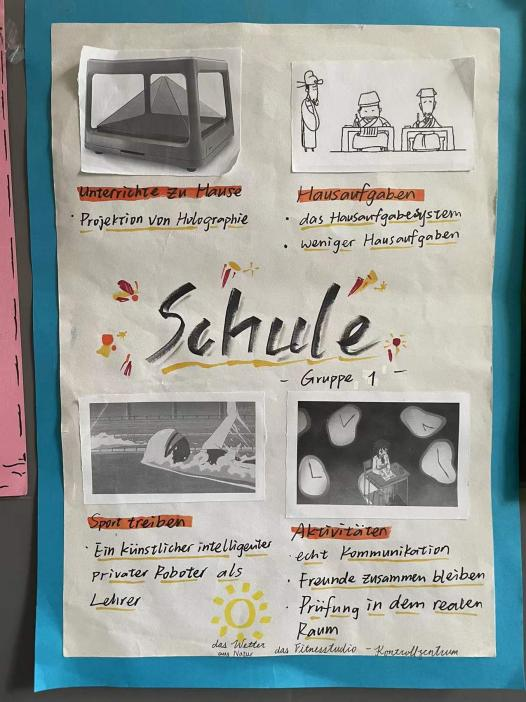 Unterrichte zu Hause
· Projektion von Holographie
Hausaufgaben
· das Hausaufgabesystem
· weniger Hausaufgaben
Schule
- Gruppe 1 -
Sport treiben
· Ein künstlicher intelligenter
privater Roboter als
Lehrer
Aktivitäten
· echt Kommunikation
· Freunde zusammen bleiben
· Prüfung in dem realen
Raum
das Wetter
aus Natur
das Fitnesstudio - Kontrollzentrum